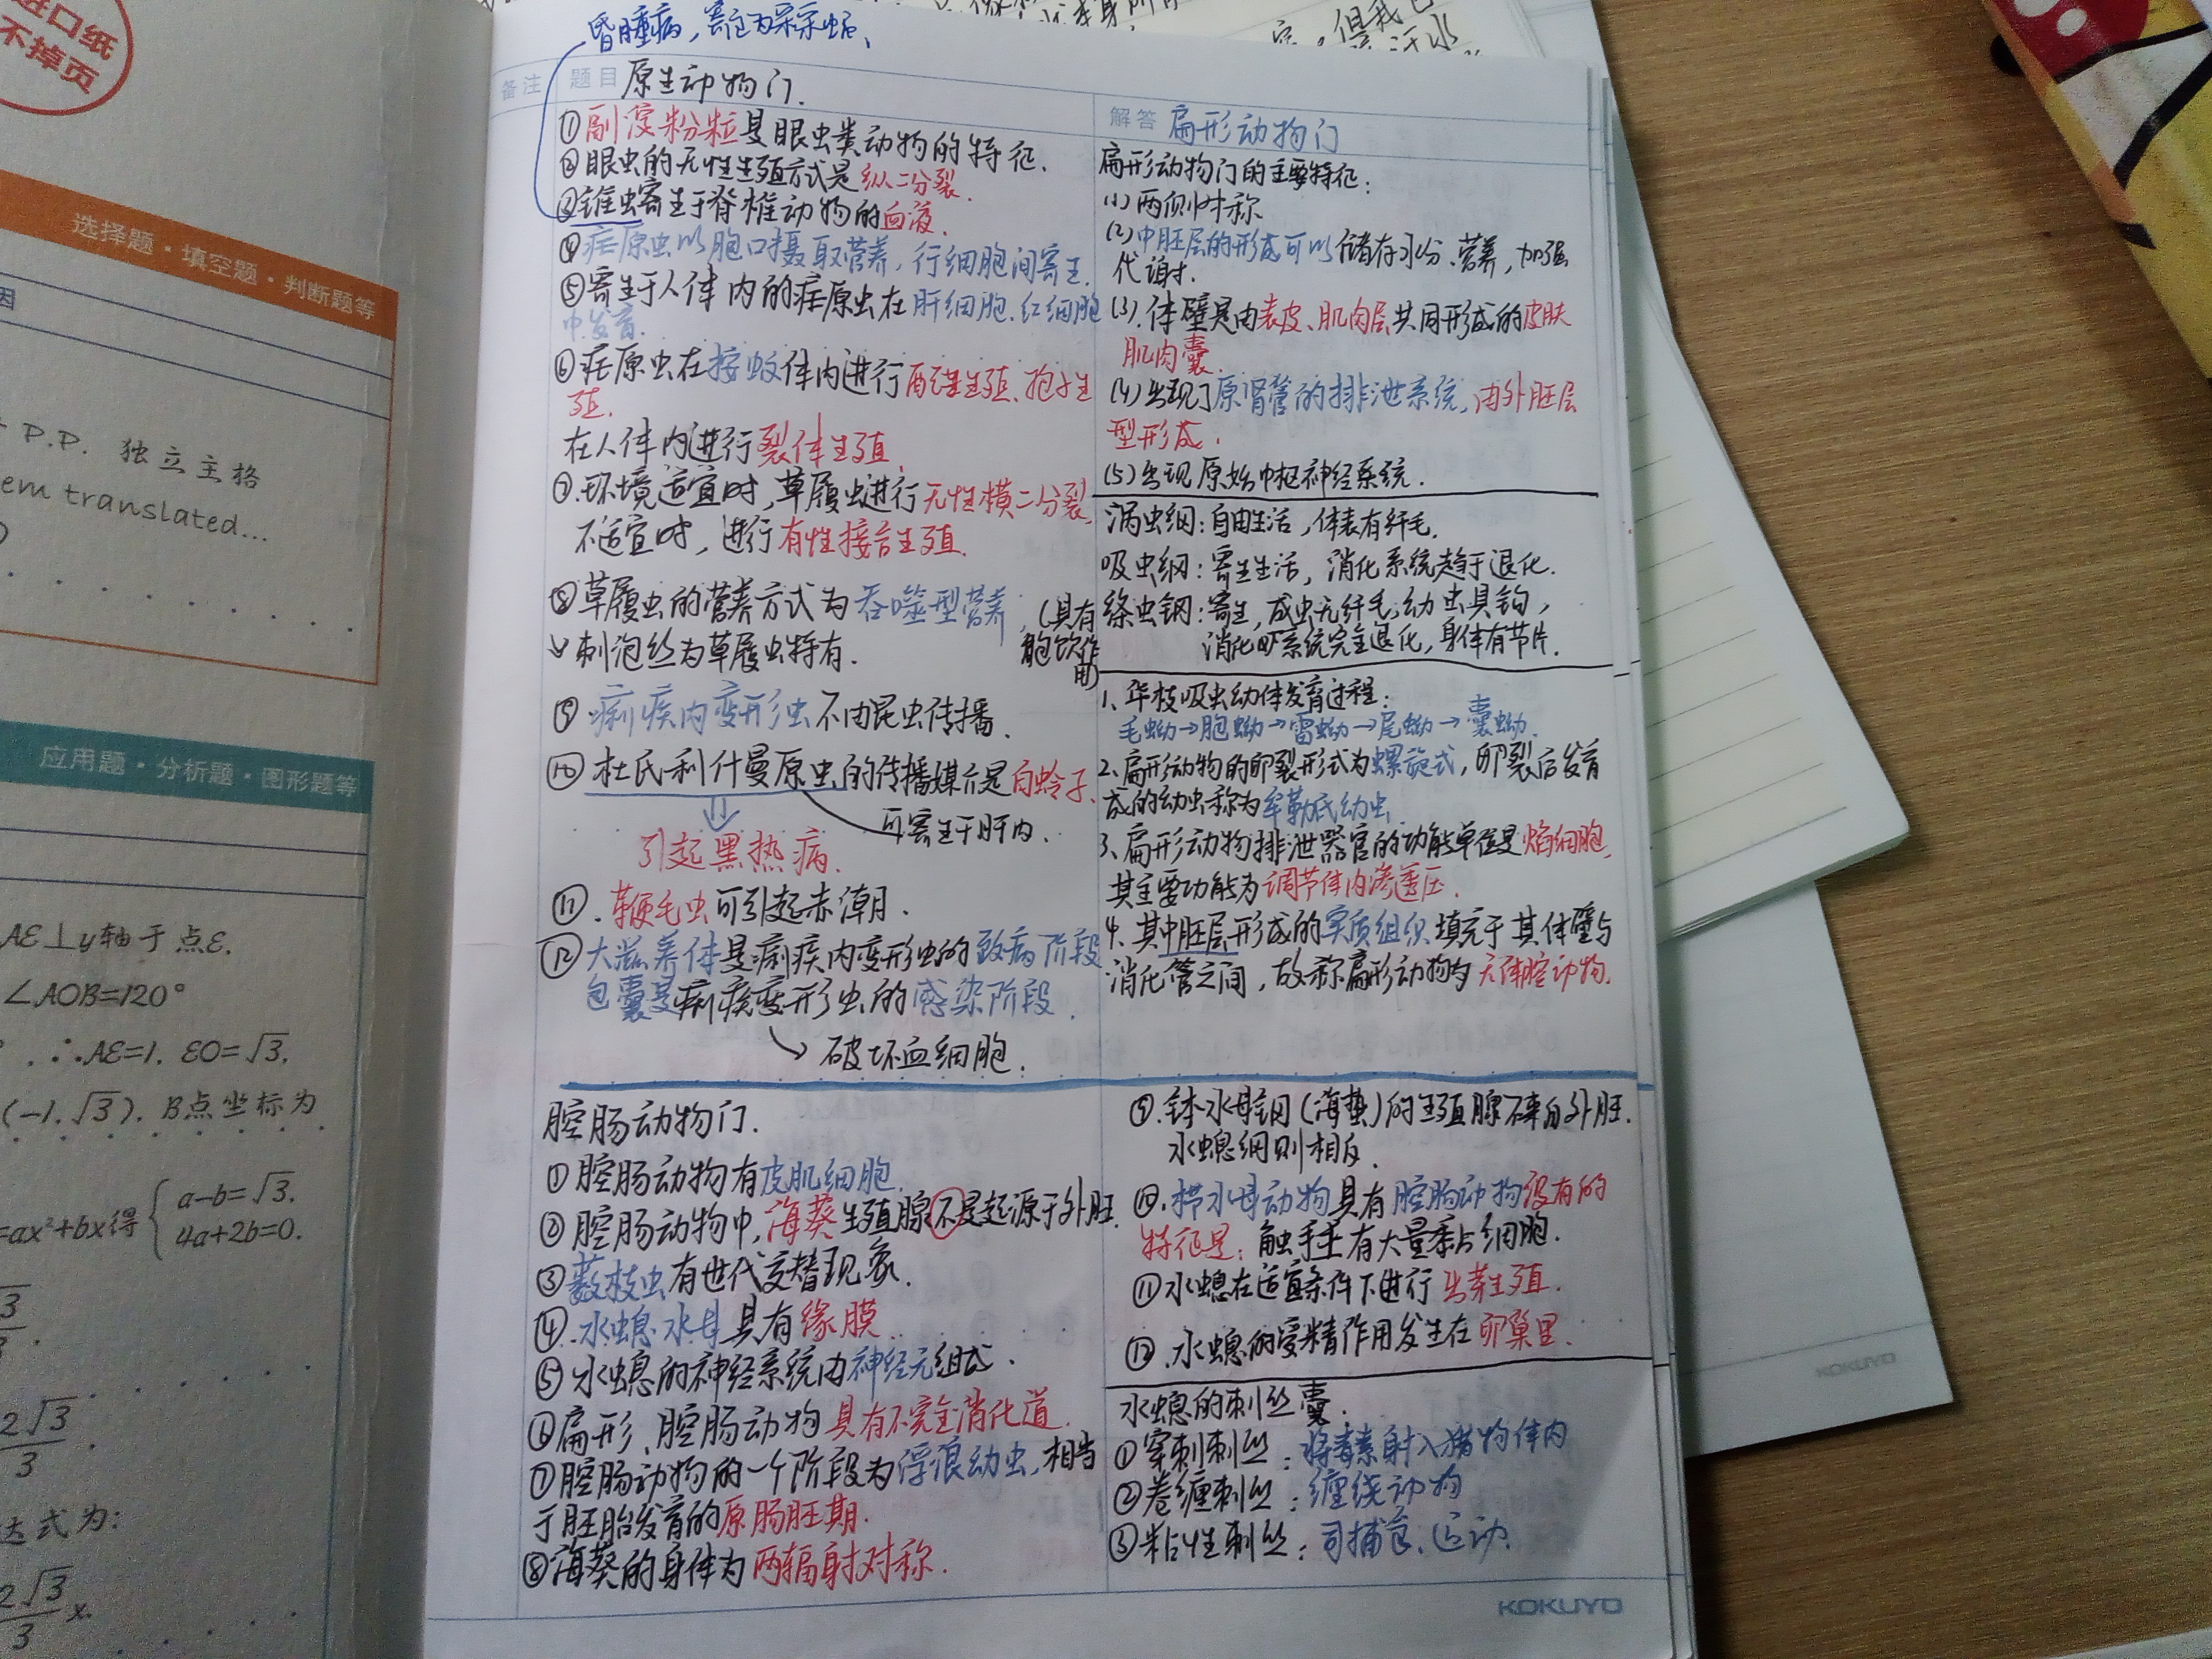 进口纸
不掉页
选择题·填空题·判断题等
因
P.P. 独立主格
em translated...
应用题·分析题·图形题等
AE⊥y轴于点E.
∠AOB=120°
∴AE=1. EO=√3,
(-1,√3). B点坐标为
=ax²+bx得 { a-b=√3.
4a+2b=0.
达式为:
2√3/3 x.
昏睡病,寄主为采采蝇、
备注
题目 原生动物门.
①副淀粉粒是眼虫类动物的特征.
②眼虫的无性生殖方式是纵二分裂.
③锥虫寄生于脊椎动物的血液.
④疟原虫以胞口摄取营养,行细胞间寄生.
⑤寄生于人体内的疟原虫在肝细胞.红细胞
中发育.
⑥疟原虫在按蚊体内进行配子生殖、孢子生
殖.
在人体内进行裂体生殖
⑦.环境适宜时,草履虫进行无性横二分裂,
不适宜时,进行有性接合生殖.
⑧草履虫的营养方式为吞噬型营养,(具有
胞饮作
用)
刺泡丝为草履虫特有.
⑨痢疾内变形虫不由昆虫传播.
⑩杜氏利什曼原虫的传播媒介是白蛉子.
可寄生于肝内.
引起黑热病.
⑪.鞭毛虫可引起赤潮.
⑫大滋养体是痢疾内变形虫的致病阶段
包囊是痢疾变形虫的感染阶段.
破坏血细胞.
腔肠动物门.
①腔肠动物有皮肌细胞.
②腔肠动物中,海葵生殖腺不是起源于外胚.
③薮枝虫有世代交替现象.
④.水螅水母具有缘膜.
⑤水螅的神经系统由神经元组成.
⑥扁形、腔肠动物具有不完全消化道.
⑦腔肠动物的一个阶段为浮浪幼虫,相当
于胚胎发育的原肠胚期.
⑧海葵的身体为两辐射对称.
解答 扁形动物门
扁形动物门的主要特征:
(1)两侧对称
(2)中胚层的形成可以储存水分.营养,加强
代谢.
(3).体壁是由表皮、肌肉层共同形成的皮肤
肌肉囊.
(4)出现了原肾管的排泄系统,由外胚层
型形成.
(5)出现原始中枢神经系统.
涡虫纲:自由生活,体表有纤毛.
吸虫纲:寄生生活,消化系统趋于退化.
绦虫钢:寄生,成虫无纤毛,幼虫具钩,
消化系统完全退化,身体有节片.
1、华枝吸虫幼体发育过程:
毛蚴→胞蚴→雷蚴→尾蚴→囊蚴.
2、扁形动物的卵裂形式为螺旋式,卵裂后发育
成的幼虫称为牟勒氏幼虫.
3、扁形动物排泄器官的功能单位是焰细胞,
其主要功能为调节体内渗透压.
4、其中胚层形成的实质组织填充于其体壁与
消化管之间,故称扁形动物为无体腔动物.
⑨.钵水母纲(海蜇)的生殖腺不来自外胚.
水螅纲则相反.
⑩.栉水母动物具有腔肠动物没有的
特征是:触手上有大量黏细胞.
⑪水螅在适宜条件下进行出芽生殖.
⑫.水螅的受精作用发生在卵巢里.
水螅的刺丝囊.
①穿刺刺丝:将毒素射入猎物体内
②卷缠刺丝:缠绕动物
③粘性刺丝:司捕食、运动.
KOKUYO
KOKUYO